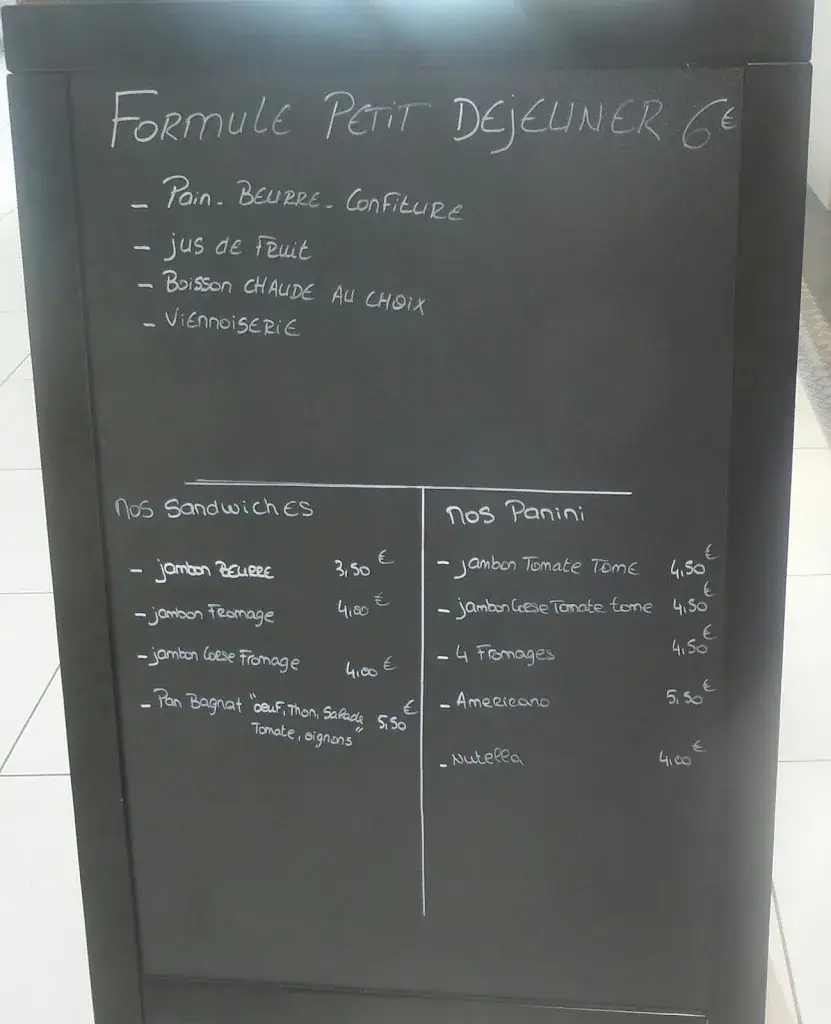 FORMULE PETIT DEJEUNER 6€
- Pain - BEURRE - CONFITURE
- jus de FRUIT
- BOISSON CHAUDE AU CHOIX
- VIENNOISERIE
NOS SANDWICHES
- jambon BEURRE 3,50€
- jambon FROMAGE 4,00€
- jambon CORSE FROMAGE 4,00€
- Pan Bagnat "oeuf, Thon, Salade 5,50€
Tomate, oignons"
NOS Panini
- jambon Tomate TOME 4,50€
- jambon CORSE Tomate tome 4,50€
- 4 FROMAGES 4,50€
- AMERICANO 5,50€
- Nutella 4,00€